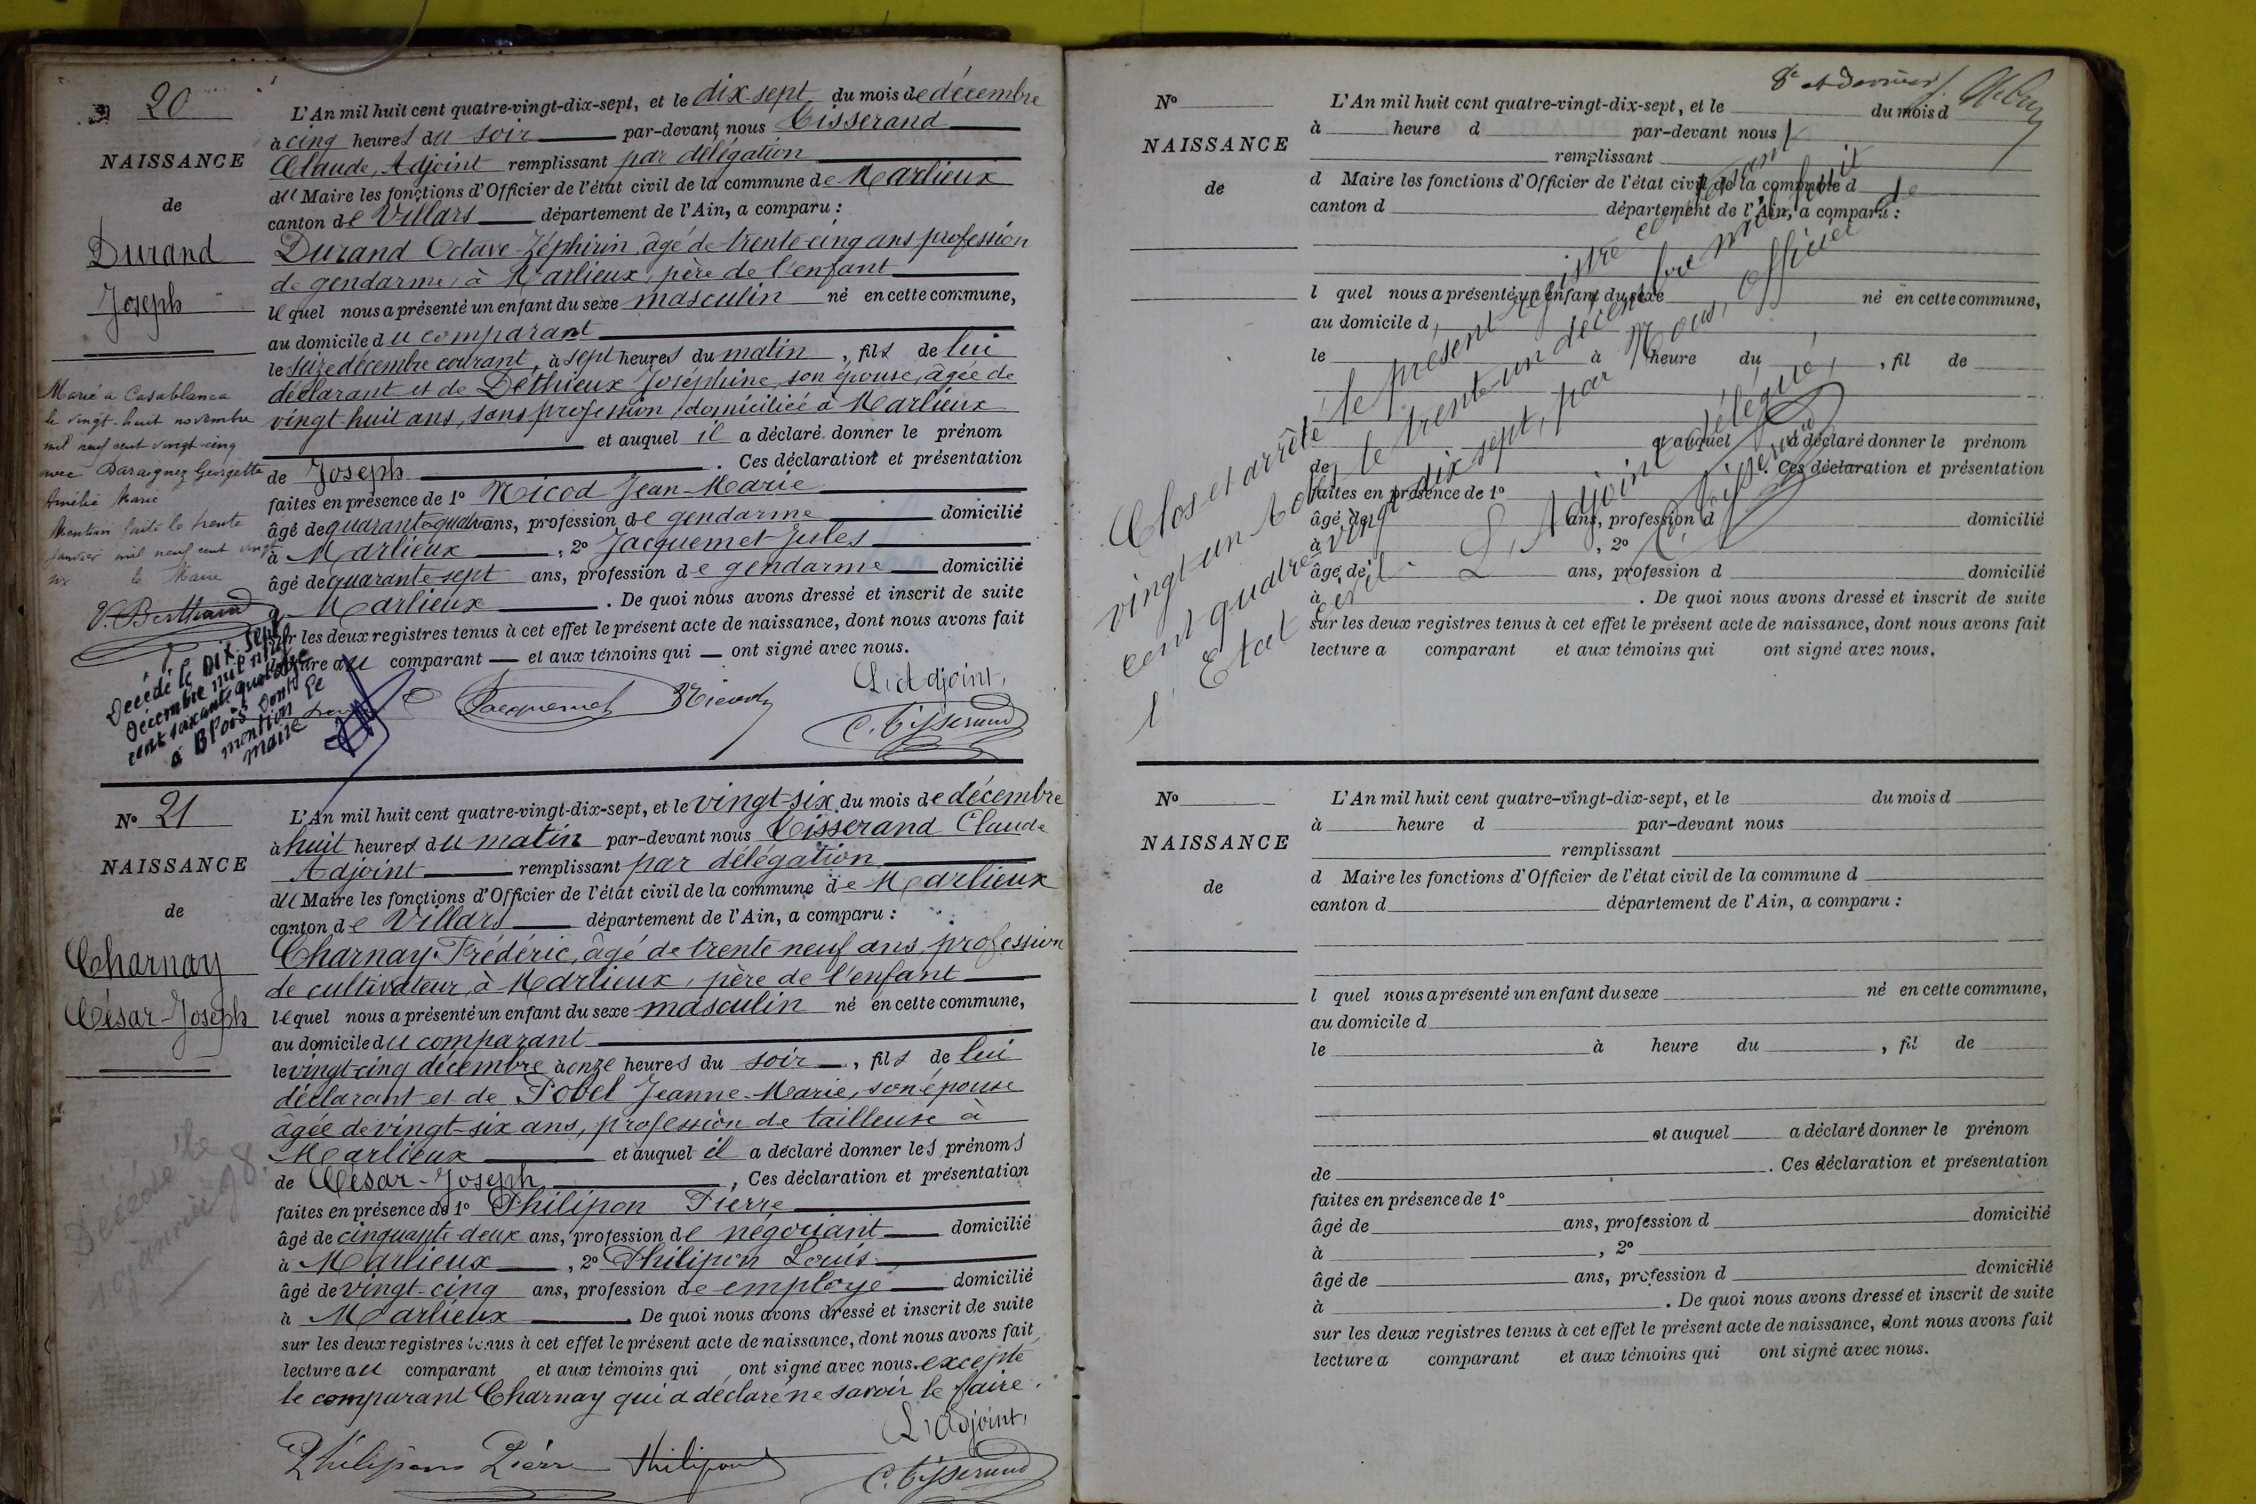 N° 20
NAISSANCE
de
Durand
Joseph
L'An mil huit cent quatre-vingt-dix-sept, et le dix-sept du mois de décembre
à cinq heures du soir par-devant nous Tisserand
Claude, Adjoint remplissant par délégation
du Maire les fonctions d'Officier de l'état civil de la commune de Marlieux
canton de Villars département de l'Ain, a comparu :
Durand Octave-Zéphirin, âgé de trente-cinq ans, profession
de gendarme, à Marlieux, père de l'enfant
lequel nous a présenté un enfant du sexe masculin né en cette commune,
au domicile du comparant
le seize décembre courant, à sept heures du matin, fils de lui
déclarant et de Dethieux Joséphine, son épouse, âgée de
vingt-huit ans, sans profession, domiciliée à Marlieux
et auquel il a déclaré donner le prénom
de Joseph. Ces déclaration et présentation
faites en présence de 1° Nicod Jean-Marie
âgé de quarante-quatre ans, profession de gendarme domicilié
à Marlieux, 2° Jacquemet Jules
âgé de quarante sept ans, profession de gendarme domicilié
à Marlieux. De quoi nous avons dressé et inscrit de suite
sur les deux registres tenus à cet effet le présent acte de naissance, dont nous avons fait
lecture au comparant et aux témoins qui ont signé avec nous.
L'Adjoint,
Jacquemet Nicod
C. Tisserand
Marié à Casablanca
le vingt-huit novembre
mil neuf cent vingt-cinq
avec Georgette
Amélie Marie
Mention faite le trente
janvier mil neuf cent vingt
six le Maire
V. Berthaud
Décédé le DIX-sept
décembre mil neuf
cent soixante quatorze
à Blois dont
mention le
maire
N° 21
NAISSANCE
de
Charnay
César-Joseph
L'An mil huit cent quatre-vingt-dix-sept, et le vingt-six du mois de décembre
à huit heures du matin par-devant nous Tisserand Claude
Adjoint remplissant par délégation
du Maire les fonctions d'Officier de l'état civil de la commune de Marlieux
canton de Villars département de l'Ain, a comparu :
Charnay Frédéric, âgé de trente neuf ans, profession
de cultivateur, à Marlieux, père de l'enfant
lequel nous a présenté un enfant du sexe masculin né en cette commune,
au domicile du comparant
le vingt-cinq décembre à onze heures du soir, fils de lui
déclarant et de Pobel Jeanne-Marie, son épouse
âgée de vingt-six ans, profession de tailleuse à
Marlieux et auquel il a déclaré donner les prénoms
de César-Joseph, Ces déclaration et présentation
faites en présence de 1° Philipon Pierre
âgé de cinquante deux ans, profession de négociant domicilié
à Marlieux, 2° Philipon Louis
âgé de vingt-cinq ans, profession de employé domicilié
à Marlieux. De quoi nous avons dressé et inscrit de suite
sur les deux registres tenus à cet effet le présent acte de naissance, dont nous avons fait
lecture au comparant et aux témoins qui ont signé avec nous. excepté
le comparant Charnay qui a déclaré ne savoir le faire.
L'Adjoint,
Philipon Pierre Philipon
C. Tisserand
Décédé le
10 janvier 98.
8e et dernier f.
N°
NAISSANCE
de
L'An mil huit cent quatre-vingt-dix-sept, et le du mois d
à heure d par-devant nous
remplissant
d Maire les fonctions d'Officier de l'état civil de la commune d
canton d département de l'Ain, a comparu :
l quel nous a présenté un enfant du sexe né en cette commune,
au domicile d
le à heure du , fil de
et auquel a déclaré donner le prénom
de . Ces déclaration et présentation
faites en présence de 1°
âgé de ans, profession d domicilié
à , 2°
âgé de ans, profession d domicilié
à . De quoi nous avons dressé et inscrit de suite
sur les deux registres tenus à cet effet le présent acte de naissance, dont nous avons fait
lecture a comparant et aux témoins qui ont signé avec nous.
Clos et arrêté le présent registre contenant
vingt un actes, le trente-un décembre mil huit
cent quatre vingt dix sept, par Nous, officier de
l'Etat civil délégué,
L'Adjoint
C. Tisserand
N°
NAISSANCE
de
L'An mil huit cent quatre-vingt-dix-sept, et le du mois d
à heure d par-devant nous
remplissant
d Maire les fonctions d'Officier de l'état civil de la commune d
canton d département de l'Ain, a comparu :
l quel nous a présenté un enfant du sexe né en cette commune,
au domicile d
le à heure du , fil de
et auquel a déclaré donner le prénom
de . Ces déclaration et présentation
faites en présence de 1°
âgé de ans, profession d domicilié
à , 2°
âgé de ans, profession d domicilié
à . De quoi nous avons dressé et inscrit de suite
sur les deux registres tenus à cet effet le présent acte de naissance, dont nous avons fait
lecture a comparant et aux témoins qui ont signé avec nous.